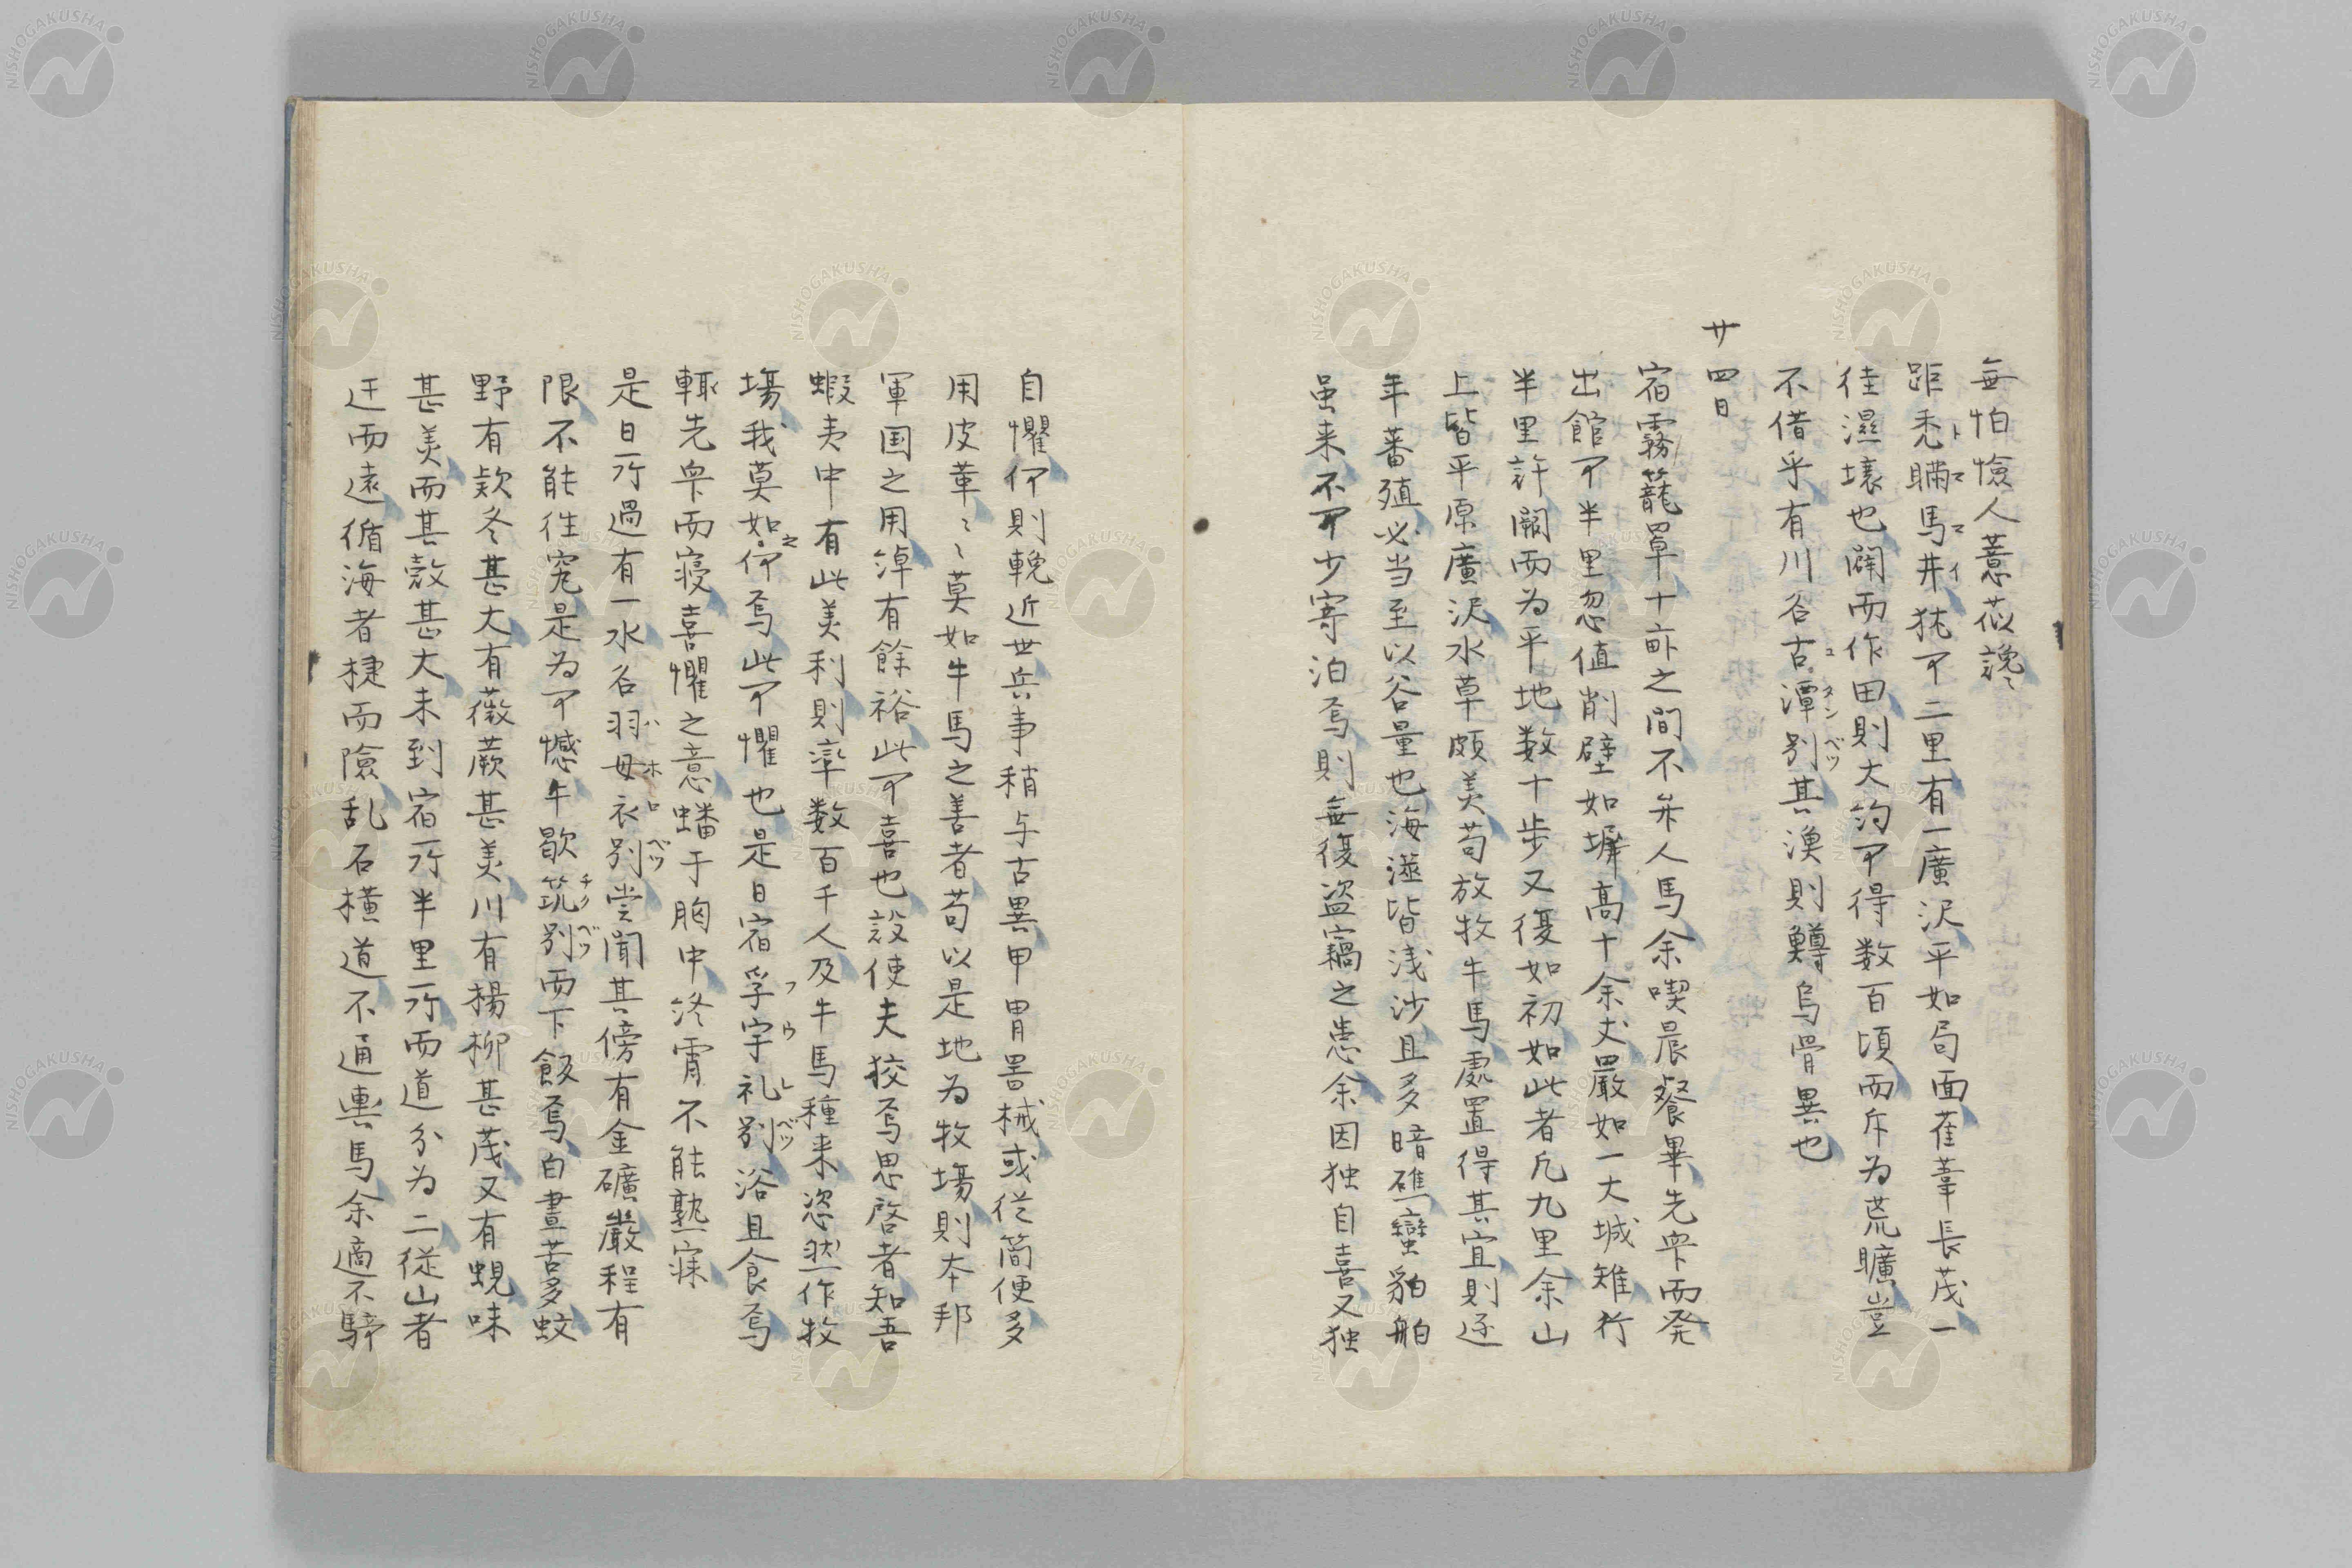 無怕憸人薏苡讒
距禿瞞馬井犹可二里有一廣沢平如局面萑葦長茂一
往濕壌也闢而作田則大約可得数百頃而斥為荒曠豈
不借乎有川名古潭別其漁則鱒烏骨異也
廿四日
宿霧籠罩十畝之間不弁人馬余喫晨餐畢先衆而発
出館可半里忽值削壁如墀高十余丈嚴如一大堿雉行
半里許闢而為平地数十歩又復如初如此者凡九里余山
上皆平原廣沢水草頗美苟放牧牛馬處置得其宜則逐
年蕃殖必当至以谷量也海澨皆浅沙且多暗礁蠻舶舶
虽来不可少寄泊焉則無復盗竊之患余因独自喜又独
自懼何則輓近世兵事稍与古異甲冑噐械或従簡便多
用皮革〻〻莫如牛馬之善者苟以是地為牧場則本邦
軍国之用綽有餘裕此可喜也設使夫狡焉思啓者知吾
蝦夷中有此美利則率数百千人及牛馬種来恣然作牧
場我莫如之何焉此可懼也是日宿孚宇礼別浴且食焉
輙先衆而寝喜懼之意蟠于胸中終霄不能熟寐
是日所過有一水名羽母衣別嘗聞其傍有金礦嚴程有
限不能往究是為可憾午歇筑別而下飯焉白晝苦多蚊
野有欵冬甚大有薇蕨甚美川有楊柳甚茂又有蜆味
甚美而其殻甚大未到宿所半里所而道分為二従山者
迂而遠循海者捷而險乱石横道不通輿馬余適不騎
トママイ
コタンベツ
フウレベツ
ハホロベツ
チクベツ
NISHOGAKUSHA